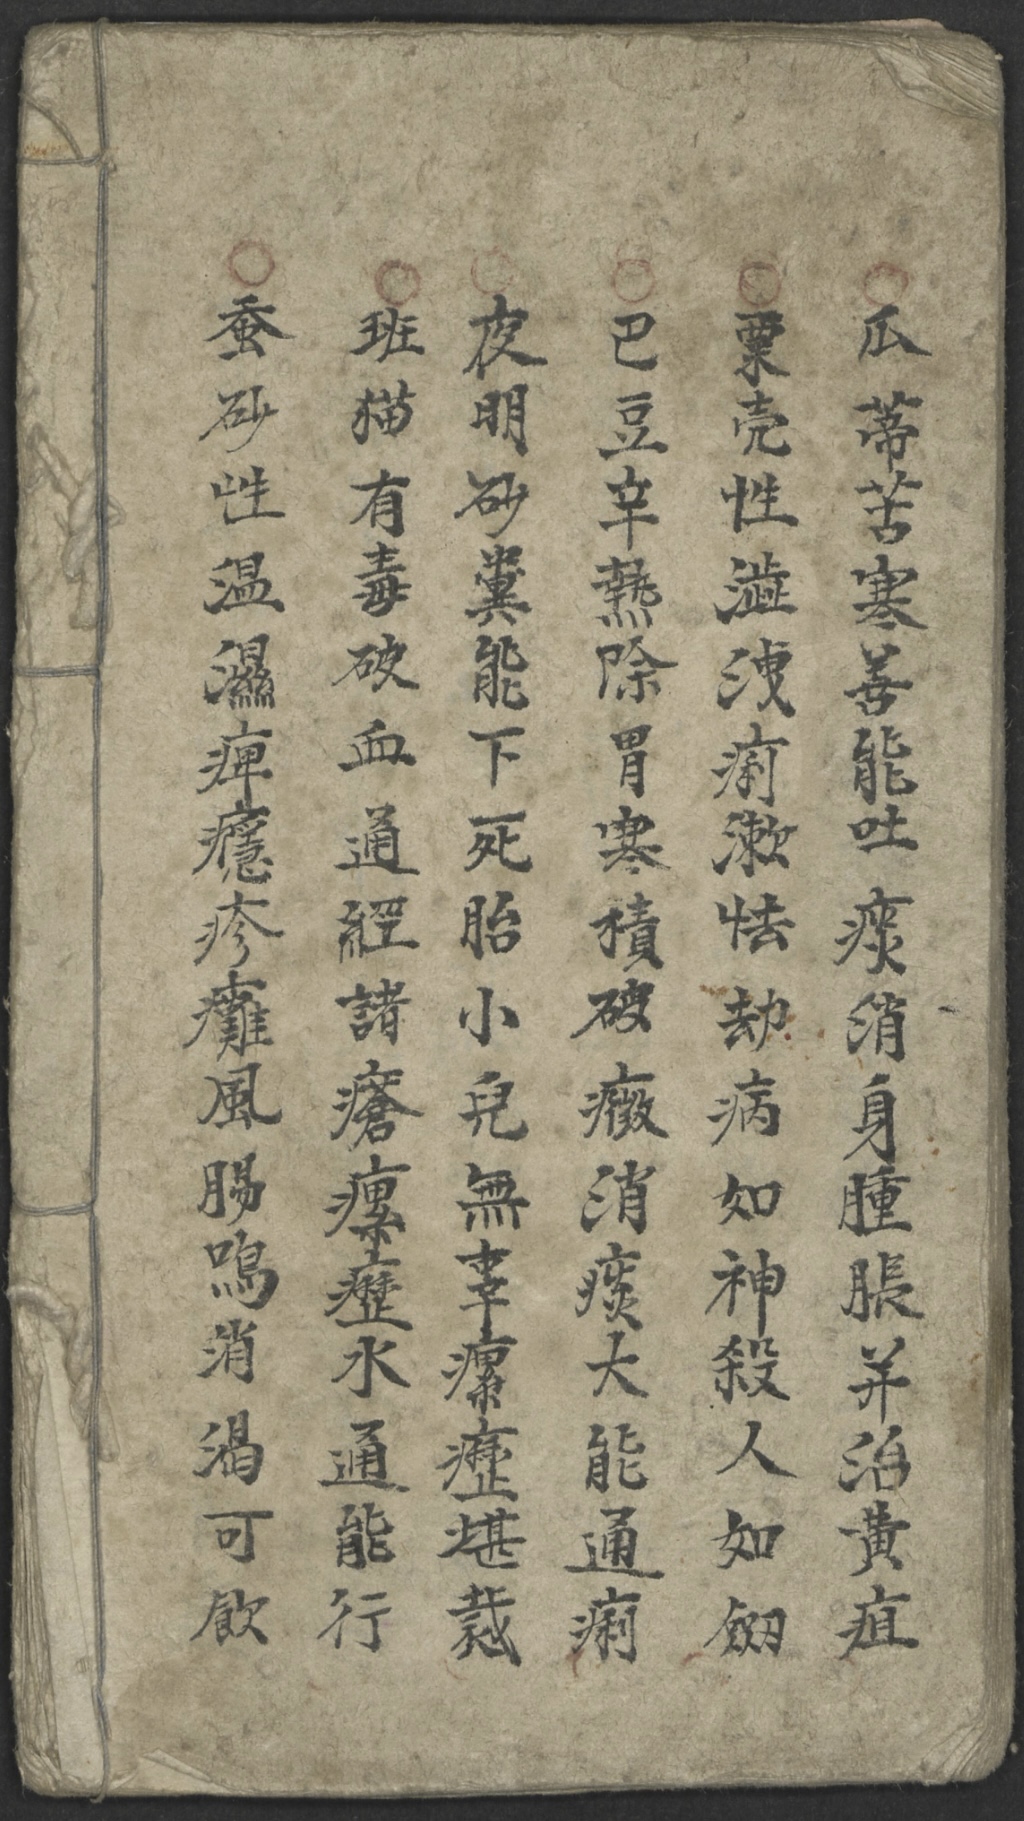 瓜蒂苦寒善能吐痰消身腫脹并治黄疸
粟壳性澁洩痢漱怯劫病如神殺人如劔
巴豆辛熱除胃寒積破癥消痰大能通痢
夜明砂糞能下死胎小兒無辜瘰癧堪裁
班猫有毒破血通經諸瘡瘰癧水通能行
蚕砂性温濕痺癮疹癱風腸鳴消渴可飲